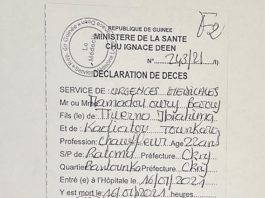 F2
REPUBLIQUE DE GUINEE
MINISTERE DE LA SANTE
CHU IGNACE DEEN
N° 243/21
DECLARATION DE DECES
SERVICE DE URGENCES MEDICALES
Mr ou Mme Mamadou oury Barry
Fils (le) de Thierno Ibrahima
Et de Kadiatou Tounkara
Profession: Chauffeur Age 22ans
S/P de Ratoma Préfecture Ckry
Quartier Préfecture Ckry
Entré (e) à l'Hôpital le 16/07/2021
Y est mort le 16/07/2021 heures